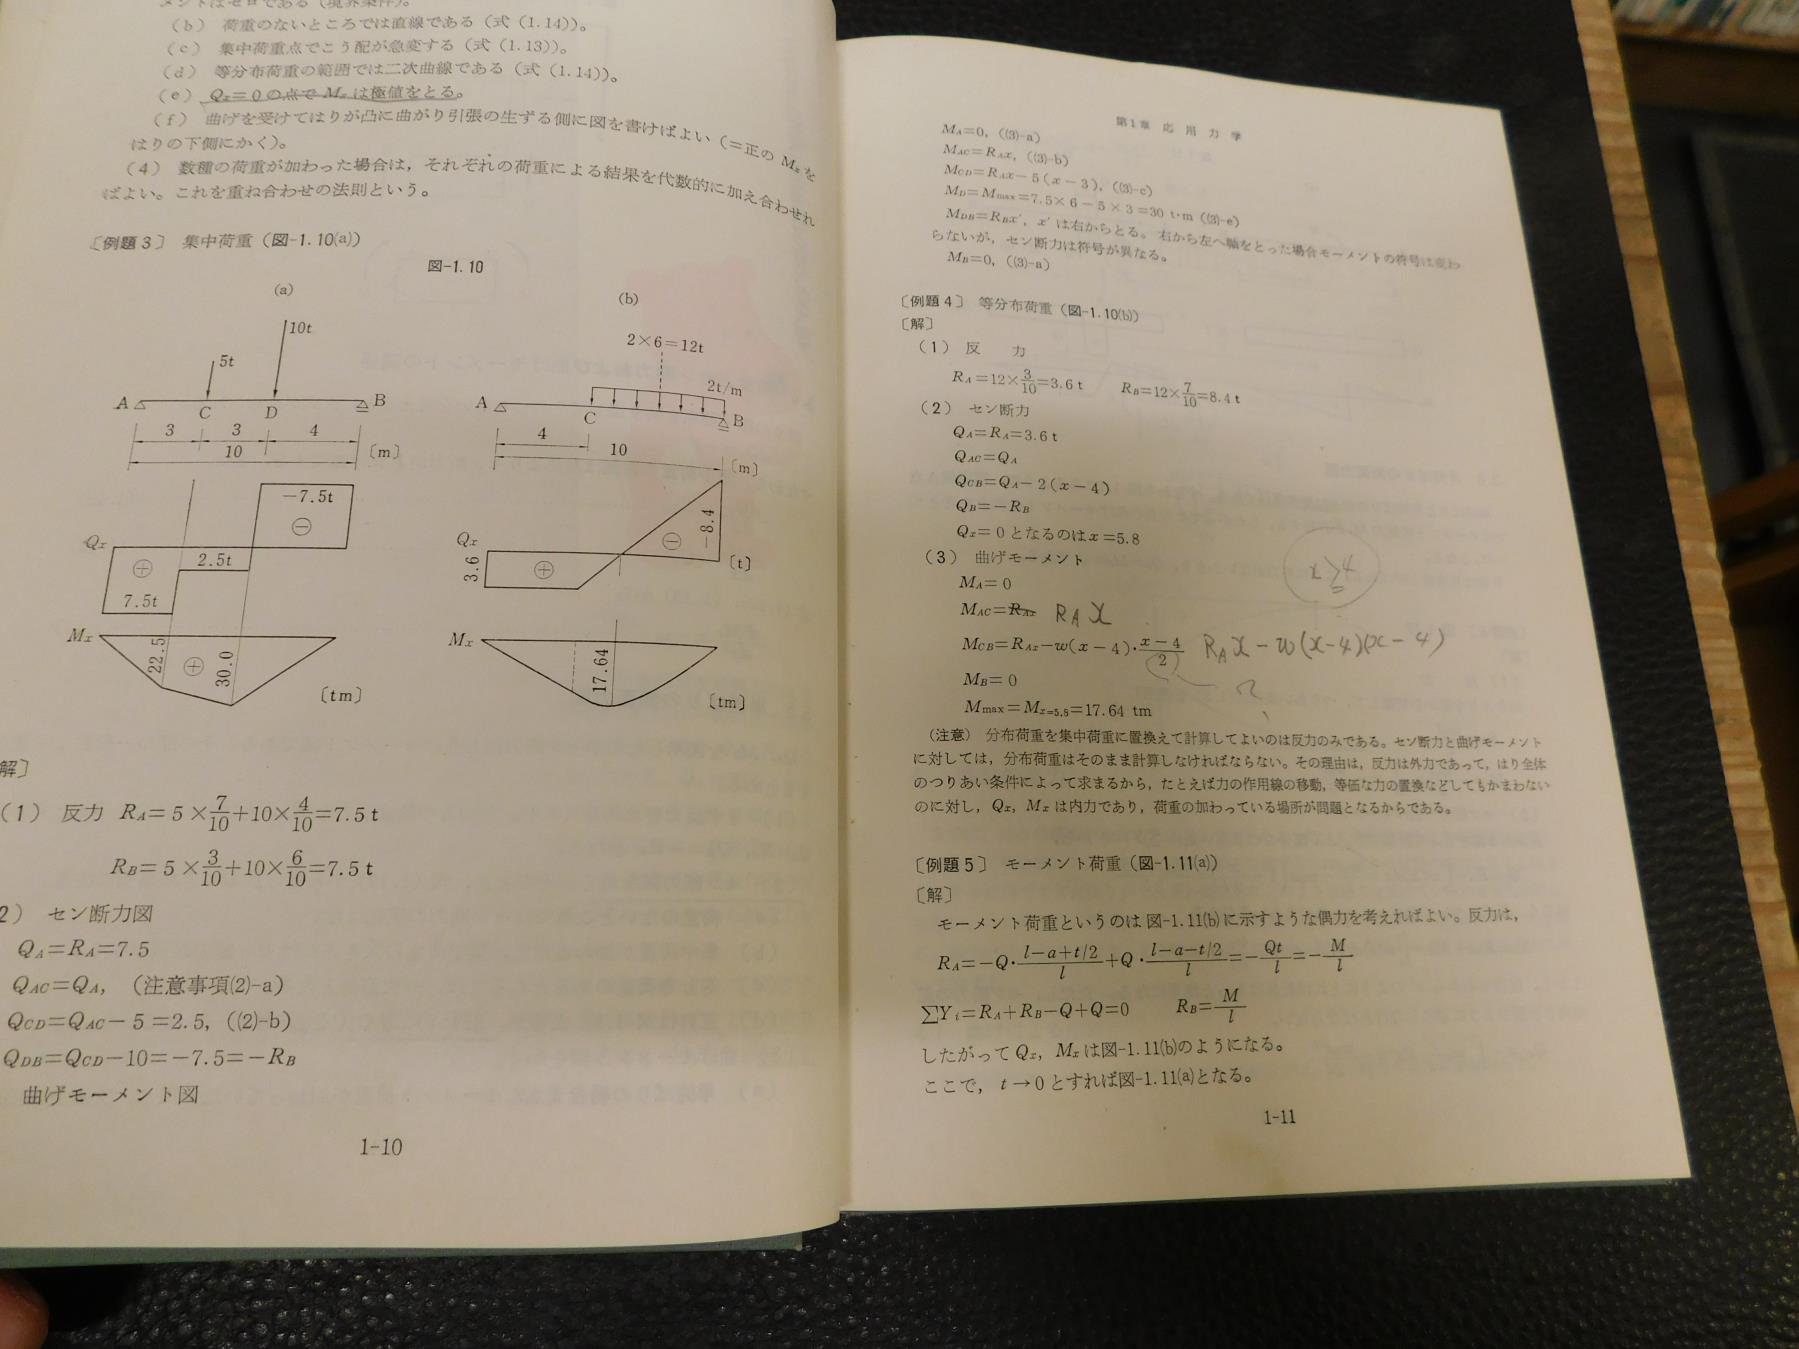 メントはゼロである（境界条件）。
(b) 荷重のないところでは直線である（式（1.14））。
(c) 集中荷重点でこう配が急変する（式（1.13））。
(d) 等分布荷重の範囲では二次曲線である（式（1.14））。
(e) Qx=0の点でMxは極値をとる。
(f) 曲げを受けてはりが凸に曲がり引張の生ずる側に図を書けばよい（=正のMxを
はりの下側にかく）。
(4) 数種の荷重が加わった場合は，それぞれの荷重による結果を代数的に加え合わせれ
ばよい。これを重ね合わせの法則という。
〔例題3〕 集中荷重（図-1.10(a)）
図-1.10
(a)
(b)
10t
5t
A C D B
3 3 4
10 〔m〕
2×6=12t
2t/m
A C B
4
10
〔m〕
Qx
7.5t
2.5t
-7.5t
Mx
22.5
30.0
〔tm〕
Qx
3.6
-8.4
〔t〕
Mx
17.64
〔tm〕
解〕
(1) 反力 RA=5×7/10+10×4/10=7.5t
RB=5×3/10+10×6/10=7.5t
2) セン断力図
QA=RA=7.5
QAC=QA, （注意事項(2)-a）
QCD=QAC-5=2.5, （(2)-b）
QDB=QCD-10=-7.5=-RB
曲げモーメント図
1-10
第1章 応用力学
MA=0, （(3)-a）
MAC=RAx, （(3)-b）
MCD=RAx-5(x-3), （(3)-c）
MD=Mmax=7.5×6-5×3=30 t·m （(3)-e）
MDB=RBx′, x′は右からとる。右から左へ軸をとった場合モーメントの符号は変わ
らないが，セン断力は符号が異なる。
MB=0, （(3)-a）
〔例題4〕 等分布荷重（図-1.10(b)）
〔解〕
(1) 反 力
RA=12×3/10=3.6t RB=12×7/10=8.4t
(2) セン断力
QA=RA=3.6t
QAC=QA
QCB=QA-2(x-4)
QB=-RB
Qx=0となるのはx=5.8
(3) 曲げモーメント
x≧4
MA=0
MAC=RAx RAx
MCB=RAx-w(x-4)·(x-4)/2 RAx-w(x-4)(x-4)
MB=0
Mmax=Mx=5.8=17.64 tm
（注意） 分布荷重を集中荷重に置換えて計算してよいのは反力のみである。セン断力と曲げモーメント
に対しては，分布荷重はそのまま計算しなければならない。その理由は，反力は外力であって，はり全体
のつりあい条件によって求まるから，たとえば力の作用線の移動，等価な力の置換などしてもかまわない
のに対し，Qx，Mxは内力であり，荷重の加わっている場所が問題となるからである。
〔例題5〕 モーメント荷重（図-1.11(a)）
〔解〕
モーメント荷重というのは図-1.11(b)に示すような偶力を考えればよい。反力は，
RA=-Q·(l-a+t/2)/l+Q·(l-a-t/2)/l=-Qt/l=-M/l
∑Yi=RA+RB-Q+Q=0 RB=M/l
したがってQx，Mxは図-1.11(b)のようになる。
ここで，t→0とすれば図-1.11(a)となる。
1-11